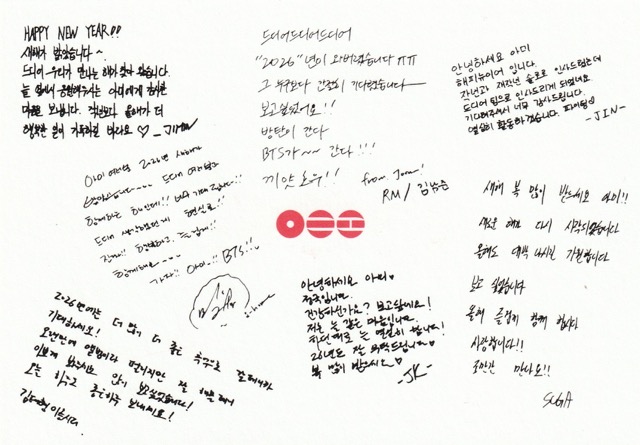 HAPPY NEW YEAR!!
새해가 밝았습니다~
드디어 우리가 만나는 해가 찾아 왔습니다.
늘 옆에서 응원해주시는 아미에게 감사한
마음을 보냅니다. 작년보다 올해가 더
행복한 일이 가득하길 바라요 ♡ _Jimin
드디어드디어드디어
"2026"년이 와버렸습니다 ㅠㅠ
그 누구보다 간절히 기다렸습니다
보고싶었어요!!
방탄이 간다
BTS가~~ 간다!!!
끼얏호우!! from Joon!
RM / 김남준
안녕하세요 아미
해피뉴이어 입니다.
작년과 재작년 솔로로 인사드렸는데
드디어 팀으로 인사드리게 되었네요.
기다려주셔서 너무 감사드립니다.
열심히 활동하겠습니다. 파이팅♡
-JIN-
아미 여러분 2026년 새해가
밝았습니다~~ 드디어 여러분과
함께하는
드디어
함께해요~~
가자!! 아미!! BTS!!
j-hope
새해 복 많이 받으세요 아미!!
새로운 해로 다시 시작되었습니다
올해도 대박 나시길 기원합니다
보고 싶었습니다
올해 즐겁게 함께 합시다
사랑합니다!!
조만간 만나요!!
SUGA
안녕하세요 아미♡
정국입니다.
건강하신가요? 보고싶네요!
저는 늘 같은 마음입니다.
26년도 잘 부탁드립니다♡
복 많이 받으세요♡
-JK-
2026년에는 더 많이 더 좋은 추억으로
기대하세요!
오랜만에 앨범이라
이쁘게 봐주시고 많이 보고싶었습니다!
오늘 하루도 좋은하루 보내세요!
김태형 이었습니다